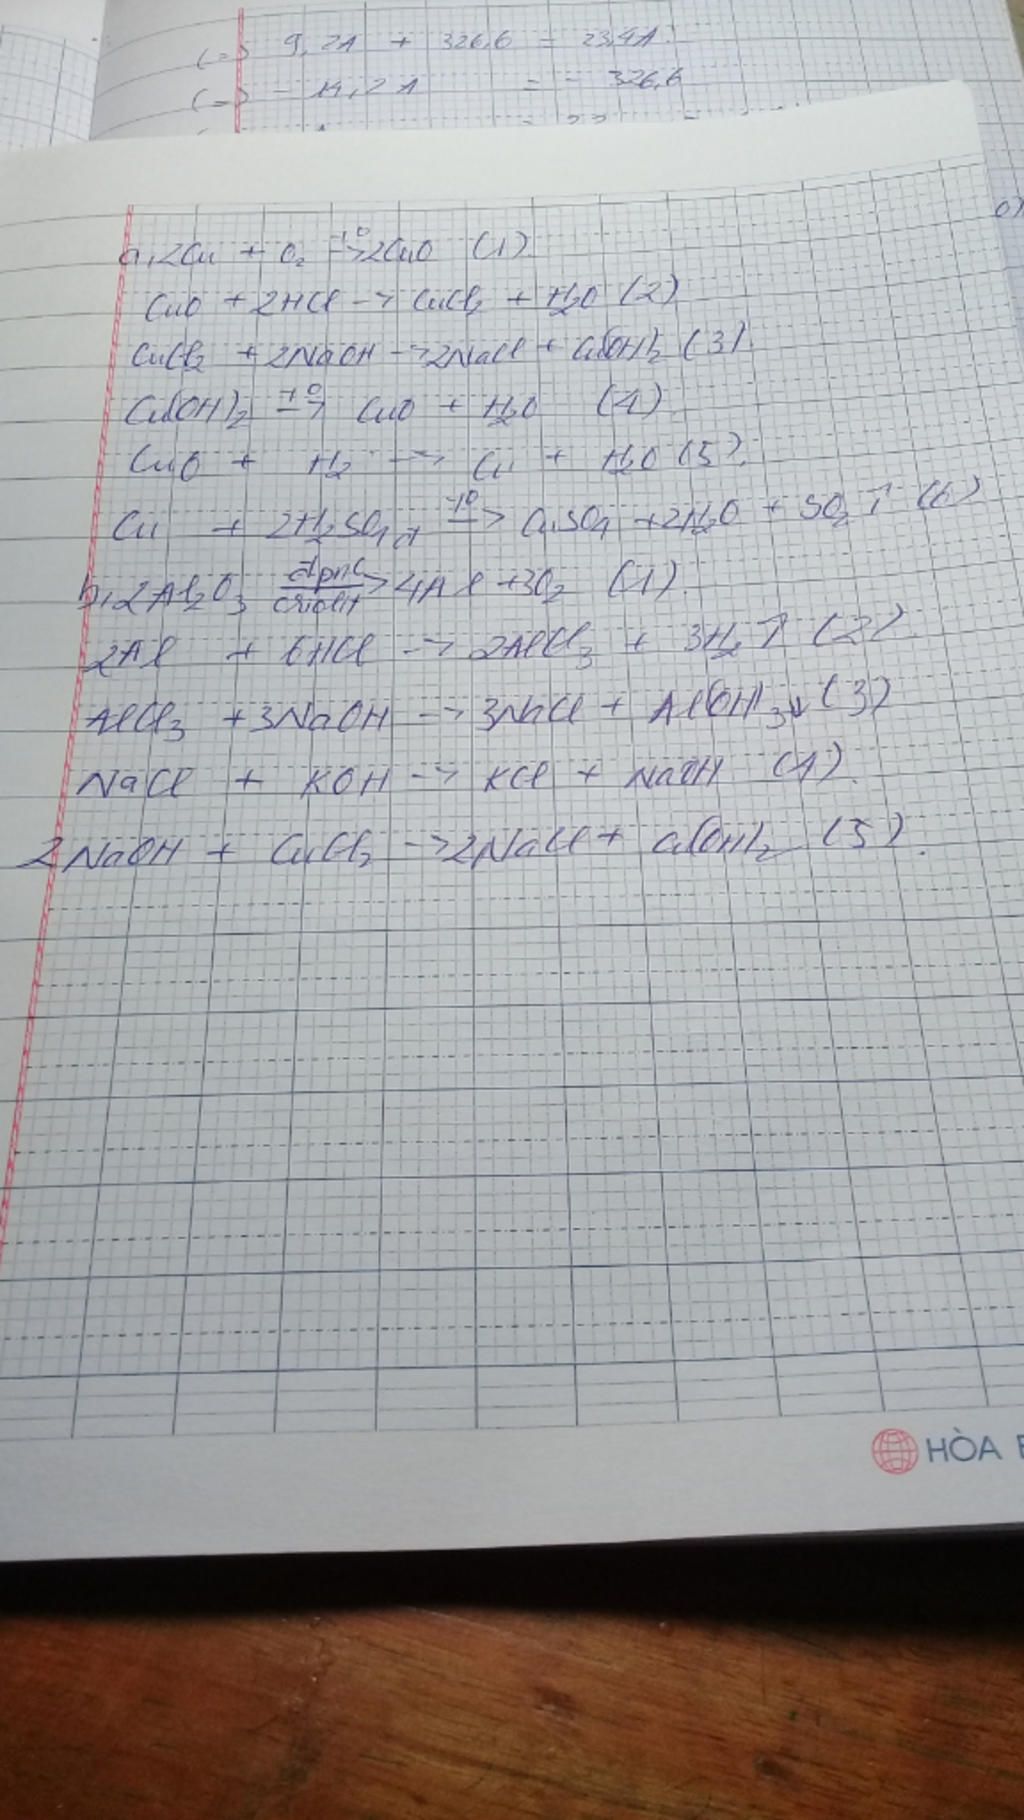 (=> 9,2A + 326,6 = 23,4A
(=> - 14,2A = - 326,6
a, 2Cu + O2 t°→ 2CuO (1)
CuO + 2HCl -> CuCl2 + H2O (2)
CuCl2 + 2NaOH -> 2NaCl + Cu(OH)2 (3)
Cu(OH)2 t°→ CuO + H2O (4)
CuO + H2 -> Cu + H2O (5).
Cu + 2H2SO4 đ t°→ CuSO4 + 2H2O + SO2↑ (6)
b, 2Al2O3 đpnc/criolit→ 4Al + 3O2 (1).
2Al + 6HCl -> 2AlCl3 + 3H2↑ (2).
AlCl3 + 3NaOH -> 3NaCl + Al(OH)3↓ (3)
NaCl + KOH -> KCl + NaOH (4).
2NaOH + CuCl2 -> 2NaCl + Cu(OH)2 (5).
HÒA